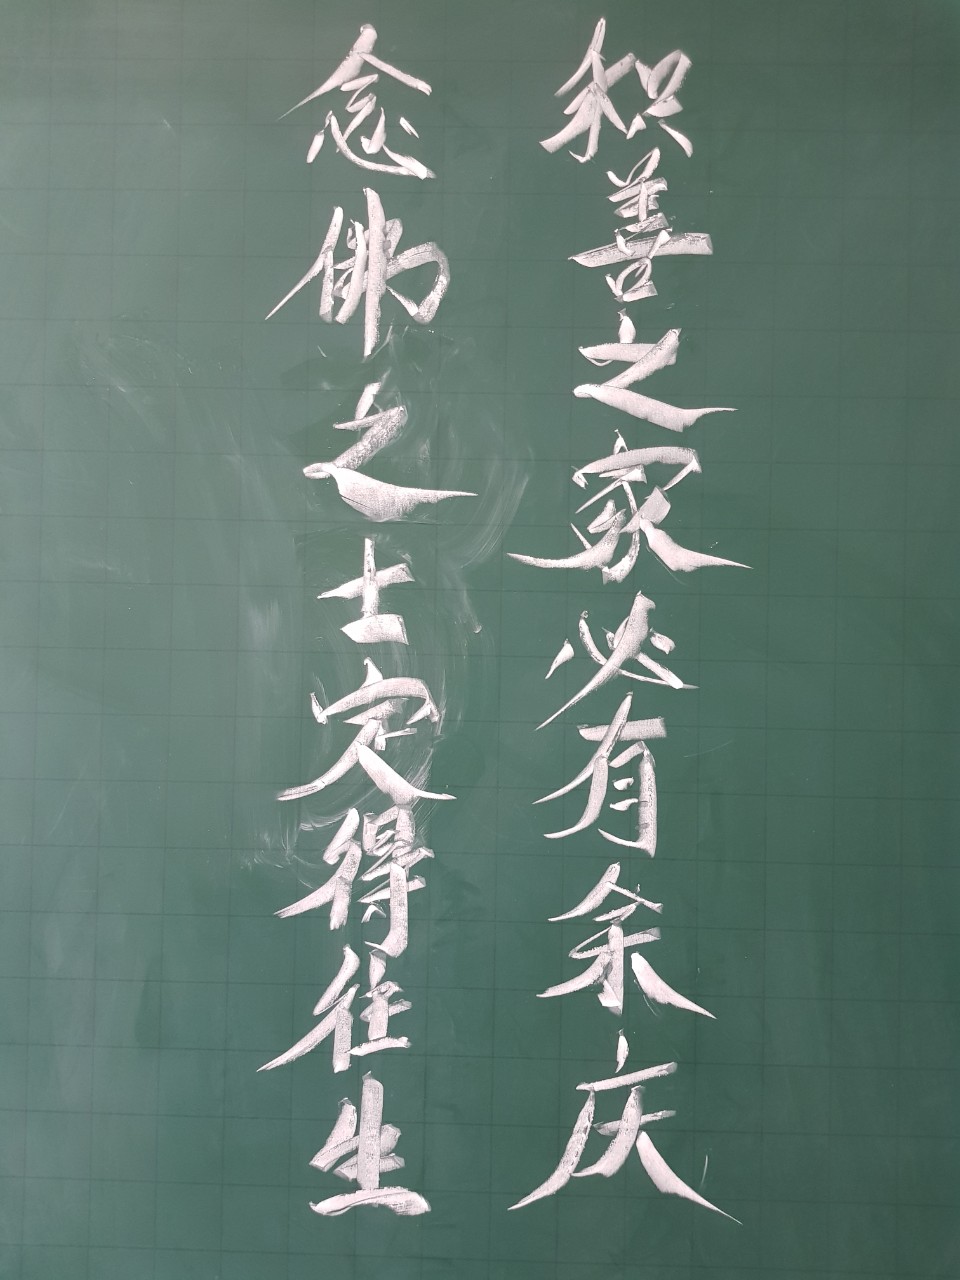 积善之家必有余庆
念佛之士定得往生